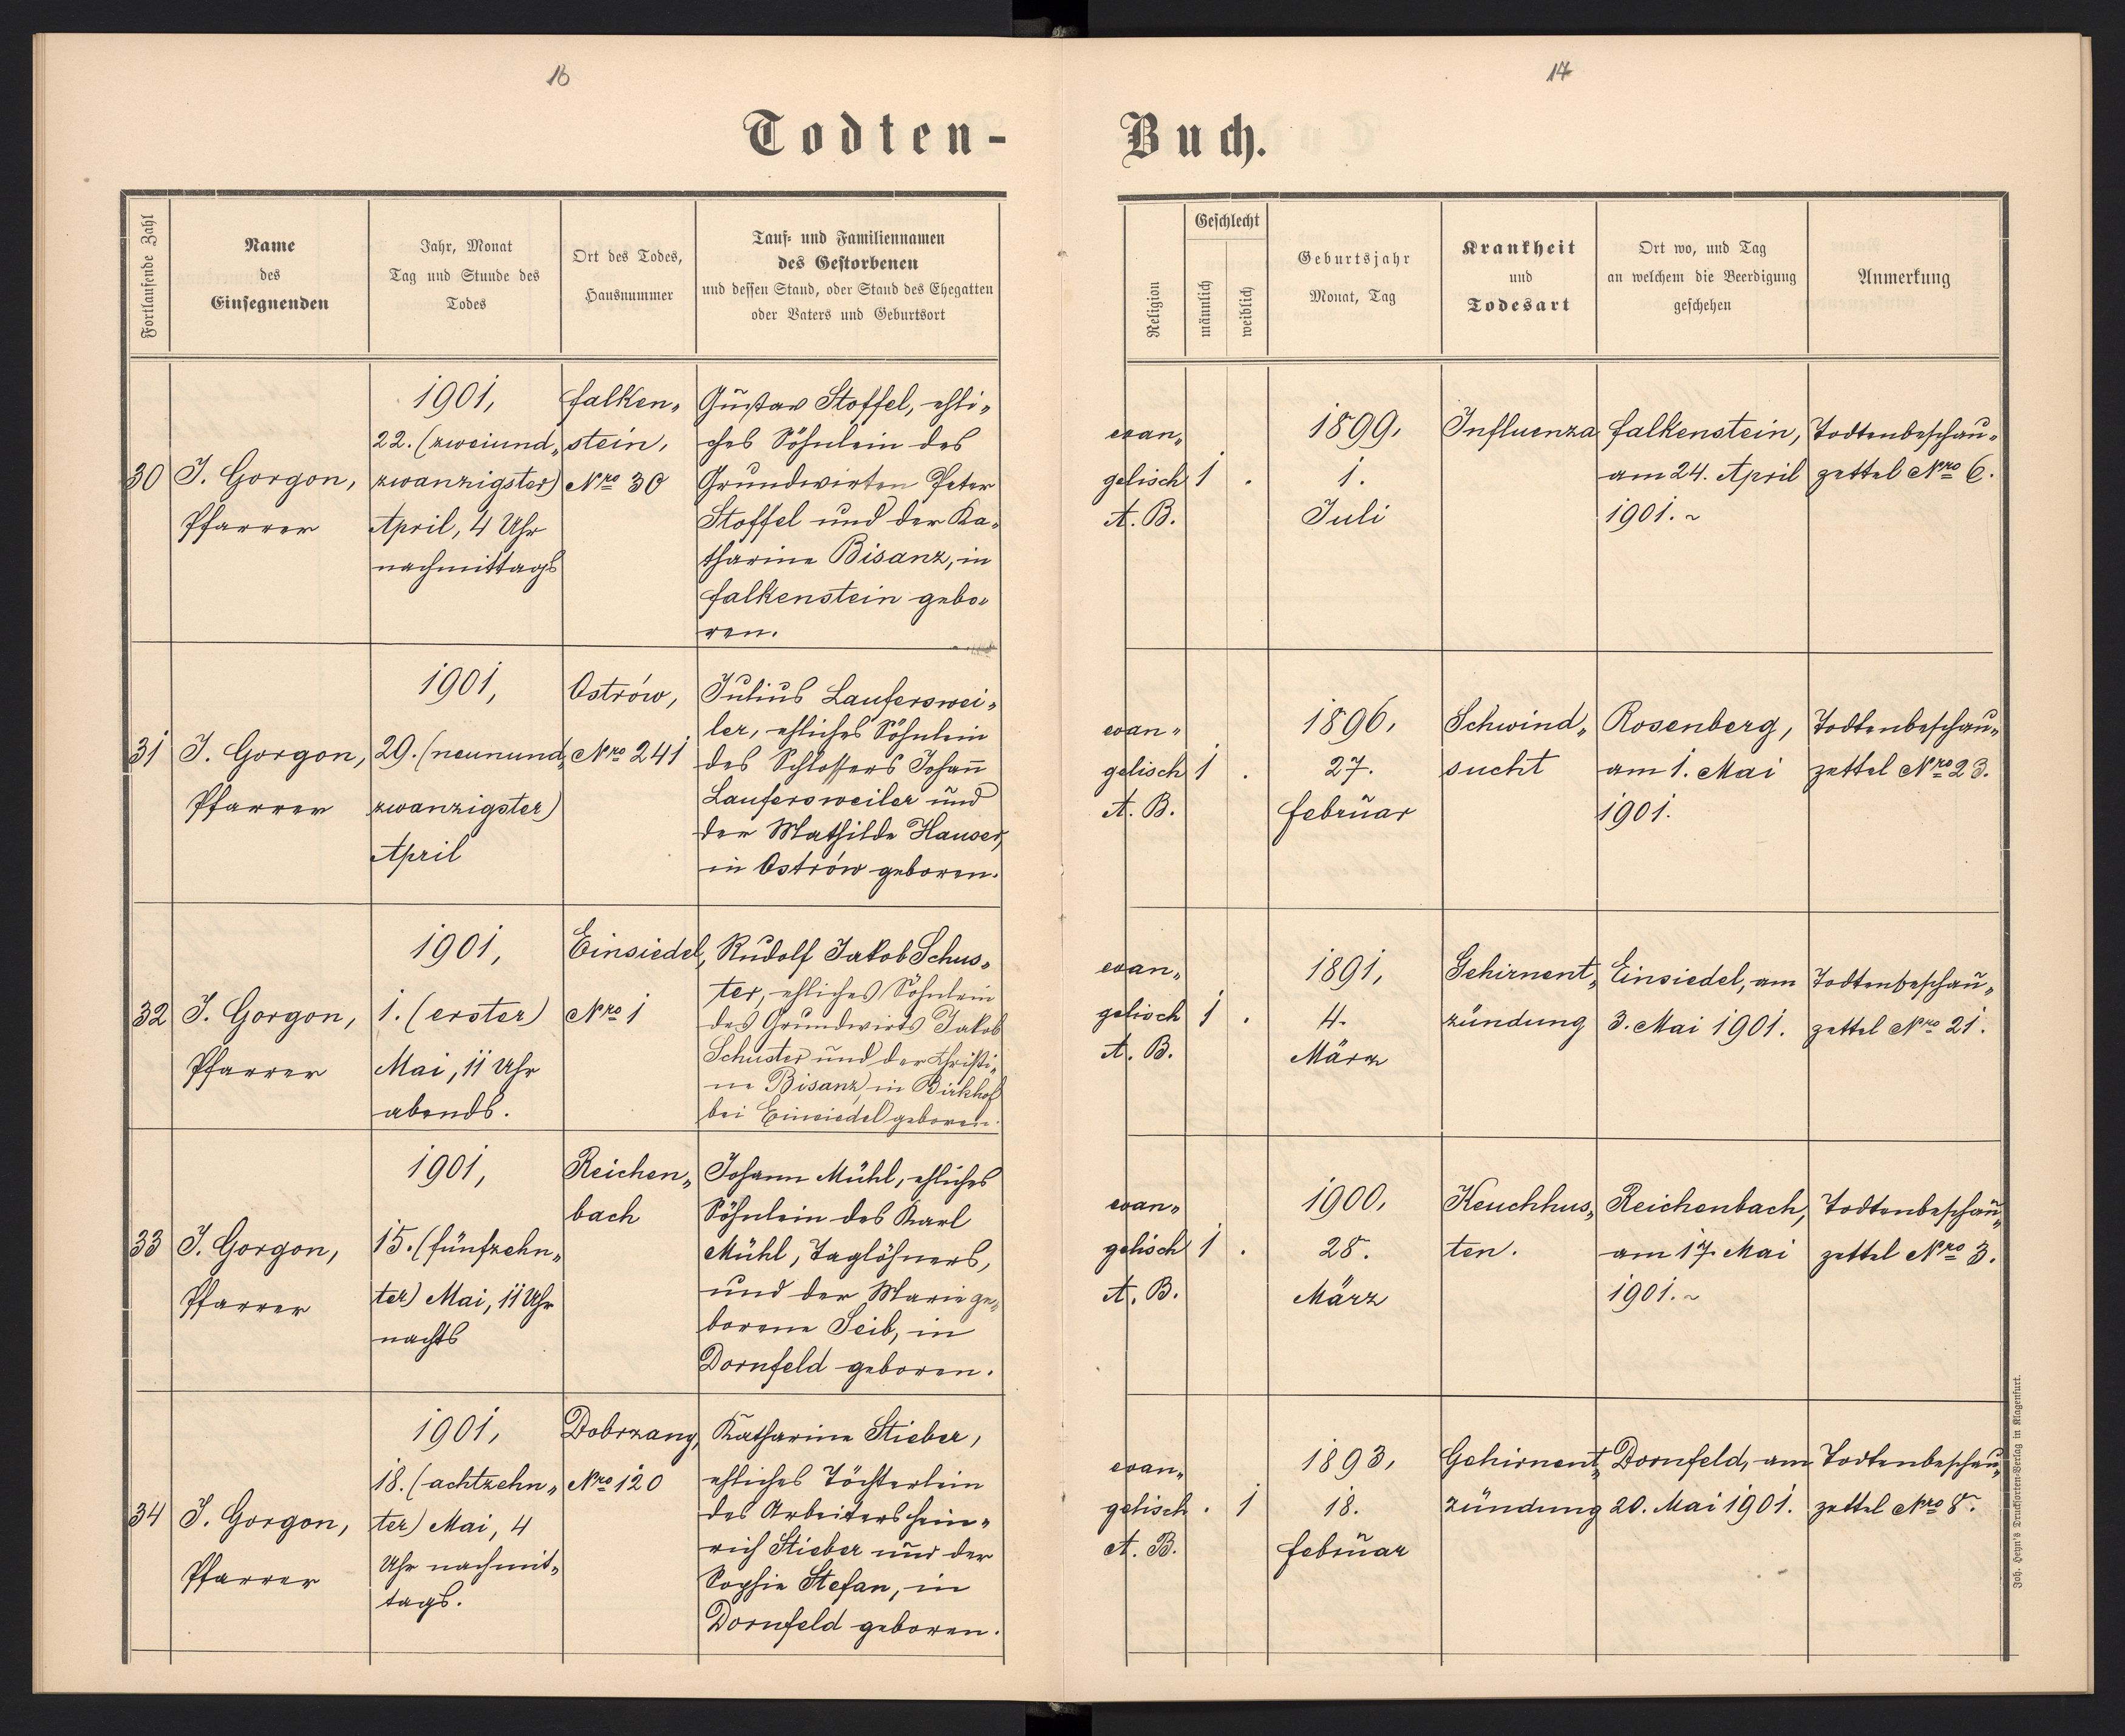 16
17
Todten-
Buch.
Fortlaufende Zahl
Name
des
Einsegnenden
Jahr, Monat
Tag und Stunde des
Todes
Ort des Todes,
Hausnummer
Tauf- und Familiennamen
des Gestorbenen
und dessen Stand, oder Stand des Ehegatten
oder Vaters und Geburtsort
Religion
Geschlecht
männlich
weiblich
Geburtsjahr
Monat, Tag
Krankheit
und
Todesart
Ort wo, und Tag
an welchem die Beerdigung
geschehen
Anmerkung
30
J. Gorgon,
Pfarrer
1901,
22. (zweiund„
zwanzigster)
April, 4 Uhr
nachmittags
Falken„
stein,
Nro 30
Gustav Stoffel, ehli„
ches Söhnlein des
Grundwirten Peter
Stoffel und der Ka„
tharine Bisanz, in
Falkenstein gebo„
ren.
evan„
gelisch
A. B.
1
.
1899,
1.
Juli
Influenza
Falkenstein,
am 24. April
1901. ~
Todtenbeschau„
zettel Nro 6.
31
J. Gorgon,
Pfarrer
1901,
29. (neunund„
zwanzigster)
April
Ostrów,
Nro 241
Julius Lauferswei„
ler, ehliches Söhnlein
des Schlossers Johan̄
Laufersweiler und
der Mathilde Hauser,
in Ostrów geboren.
evan„
gelisch
A. B.
1
.
1896,
27.
Februar
Schwind„
sucht
Rosenberg,
am 1. Mai
1901.
Todtenbeschau„
zettel Nro 23.
32
J. Gorgon,
Pfarrer
1901,
1. (erster)
Mai, 11 Uhr
abends.
Einsiedel,
Nro 1
Rudolf Jakob Schus„
ter, ehliches Söhnlein
des Grundwirts Jakob
Schuster und der Christi„
ne Bisanz, in Birkhof
bei Einsiedel geboren.
evan„
gelisch
A. B.
1
.
1891,
4.
März
Gehirnent„
zündung
Einsiedel, am
3. Mai 1901.
Todtenbeschau„
zettel Nro 21.
33
J. Gorgon,
Pfarrer
1901,
15. (fünfzehn„
ter) Mai, 11 Uhr
nachts
Reichen„
bach
Johann Mühl, ehliches
Söhnlein des Karl
Mühl, Taglöhners,
und der Marie ge„
borene Seib, in
Dornfeld geboren.
evan„
gelisch
A. B.
1
.
1900,
28.
März
Keuchhus„
ten.
Reichenbach,
am 17. Mai
1901. ~
Todtenbeschau„
zettel Nro 3.
34
J. Gorgon,
Pfarrer
1901,
18. (achtzehn„
ter) Mai, 4
Uhr nachmit„
tags.
Dobrzany,
Nro 120
Katharine Stieber,
ehliches Töchterlein
des Arbeiters Hein„
rich Stieber und der
Sophie Stefan, in
Dornfeld geboren.
evan„
gelisch
A. B.
.
1
1893,
18.
Februar
Gehirnent„
zündung
Dornfeld, am
20. Mai 1901.
Todtenbeschau„
zettel Nro 8.
Joh. Heyn's Druckforten-Verlag in Klagenfurt.